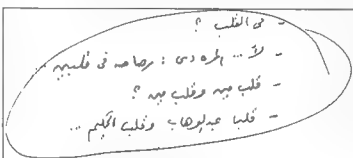 - فى القلب ؟
- لأ ... المره دى : رصاصه فى قلبين ...
- قلب مين وقلب مين ؟
- قلبا عبدالوهاب وقلب الحكيم ...